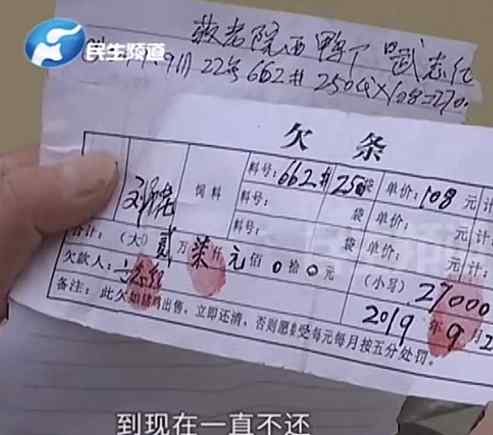 民生频道
敬老院西鸭厂 武志化
9月22号 662# 250代×108=270
欠条
饲料 料号: 662# 250袋 单价: 108 元 计
料号: 袋 单价: 元 计
料号: 袋 单价: 元 计
合计: (大) 贰 万 柒 仟 元 佰 0 拾 0 元 (小写) 27000
欠款人:
2019 年 9 月 2
备注: 此欠如猪鸡出售,立即还清,否则愿受每元每月按五分处罚。
到现在一直不还